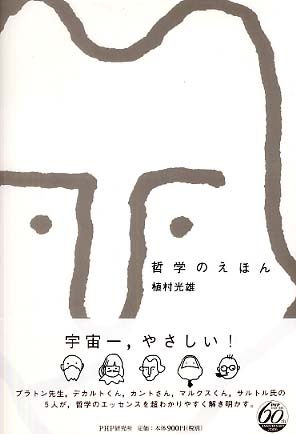 哲学のえほん
植村光雄
宇宙一，やさしい！
プラトン先生，デカルトくん，カントさん，マルクスくん，サルトル氏の
5人が，哲学のエッセンスを超わかりやすく解き明かす。
PHP研究所 定価：本体900円(税別)
60